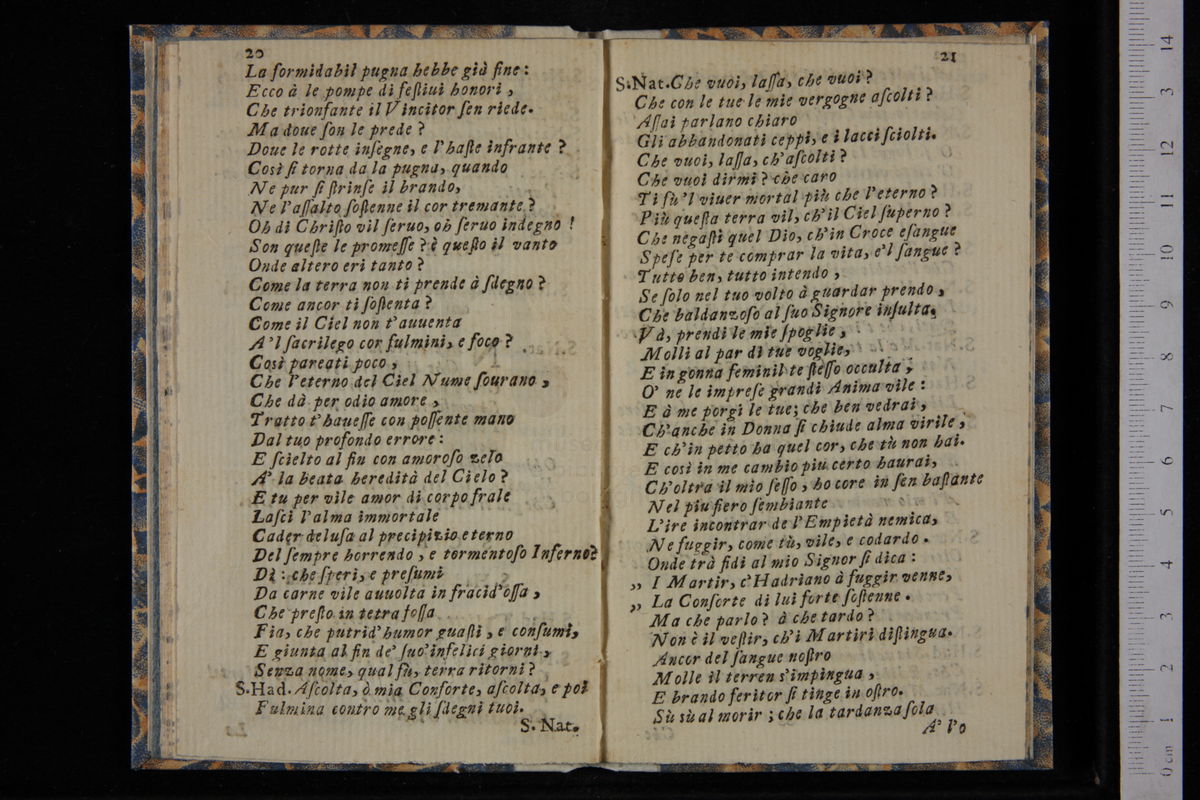 20
La formidabil pugna hebbe già fine:
Ecco à le pompe di feſtiui honori,
Che trionfante il Vincitor ſen riede.
Ma doue ſon le prede?
Doue le rotte inſegne, e l'haſte infrante?
Così ſi torna da la pugna, quando
Ne pur ſi ſtrinſe il brando,
Ne l'aſſalto ſoſtenne il cor tremante?
Oh di Chriſto vil ſeruo, oh ſeruo indegno!
Son queſte le promeſſe? è queſto il vanto
Onde altero eri tanto?
Come la terra non ti prende à ſdegno?
Come ancor ti ſoſtenta?
Come il Ciel non t'auuenta
A'l ſacrilego cor fulmini, e foco?
Così pareati poco,
Che l'eterno del Ciel Nume ſourano,
Che dà per odio amore,
Tratto t'haueſſe con poſſente mano
Dal tuo profondo errore:
E ſcielto al fin con amoroſo zelo
A' la beata heredità del Cielo?
E tu per vile amor di corpo frale
Laſci l'alma immortale
Cader deluſa al precipizio eterno
Del ſempre horrendo, e tormentoſo Inferno?
Dì: che ſperi, e preſumi
Da carne vile auuolta in fracid'oſſa,
Che preſto in tetra foſſa
Fia, che putrid'humor guaſti, e conſumi,
E giunta al fin de' ſuo' infelici giorni,
Senza nome, qual fù, terra ritorni?
S.Had. Aſcolta, ò mia Conſorte, aſcolta, e poi
Fulmina contro me gli ſdegni tuoi.
S. Nat.
21
S.Nat. Che vuoi, laſſa, che vuoi?
Che con le tue le mie vergogne aſcolti?
Aſſai parlano chiaro
Gli abbandonati ceppi, e i lacci ſciolti.
Che vuoi, laſſa, ch'aſcolti?
Che vuoi dirmi? che caro
Ti fù'l viuer mortal più che l'eterno?
Più queſta terra vil, ch'il Ciel ſuperno?
Che negaſti quel Dio, ch'in Croce eſangue
Speſe per te comprar la vita, e'l ſangue?
Tutto ben, tutto intendo,
Se ſolo nel tuo volto à guardar prendo,
Che baldanzoſo al ſuo Signore inſulta.
Và, prendi le mie ſpoglie,
Molli al par di tue voglie,
E in gonna feminil te ſteſſo occulta;
O' ne le impreſe grandi Anima vile:
E à me porgi le tue; che ben vedrai,
Ch'anche in Donna ſi chiude alma virile,
E ch'in petto ha quel cor, che tù non hai.
E così in me cambio piu certo haurai,
Ch'oltra il mio ſeſſo, ho core in ſen baſtante
Nel piu fiero ſembiante
L'ire incontrar de l'Empietà nemica,
Ne fuggir, come tù, vile, e codardo.
Onde trà fidi al mio Signor ſi dica:
„ I Martir, c'Hadriano à fuggir venne,
„ La Conſorte di lui forte ſoſtenne.
Ma che parlo? à che tardo?
Non è il veſtir, ch'i Martiri diſtingua.
Ancor del ſangue noſtro
Molle il terren s'impingua,
E brando feritor ſi tinge in oſtro.
Sù sù al morir; che la tardanza ſola
A' l'o
0 cm 1 2 3 4 5 6 7 8 9 10 11 12 3 14